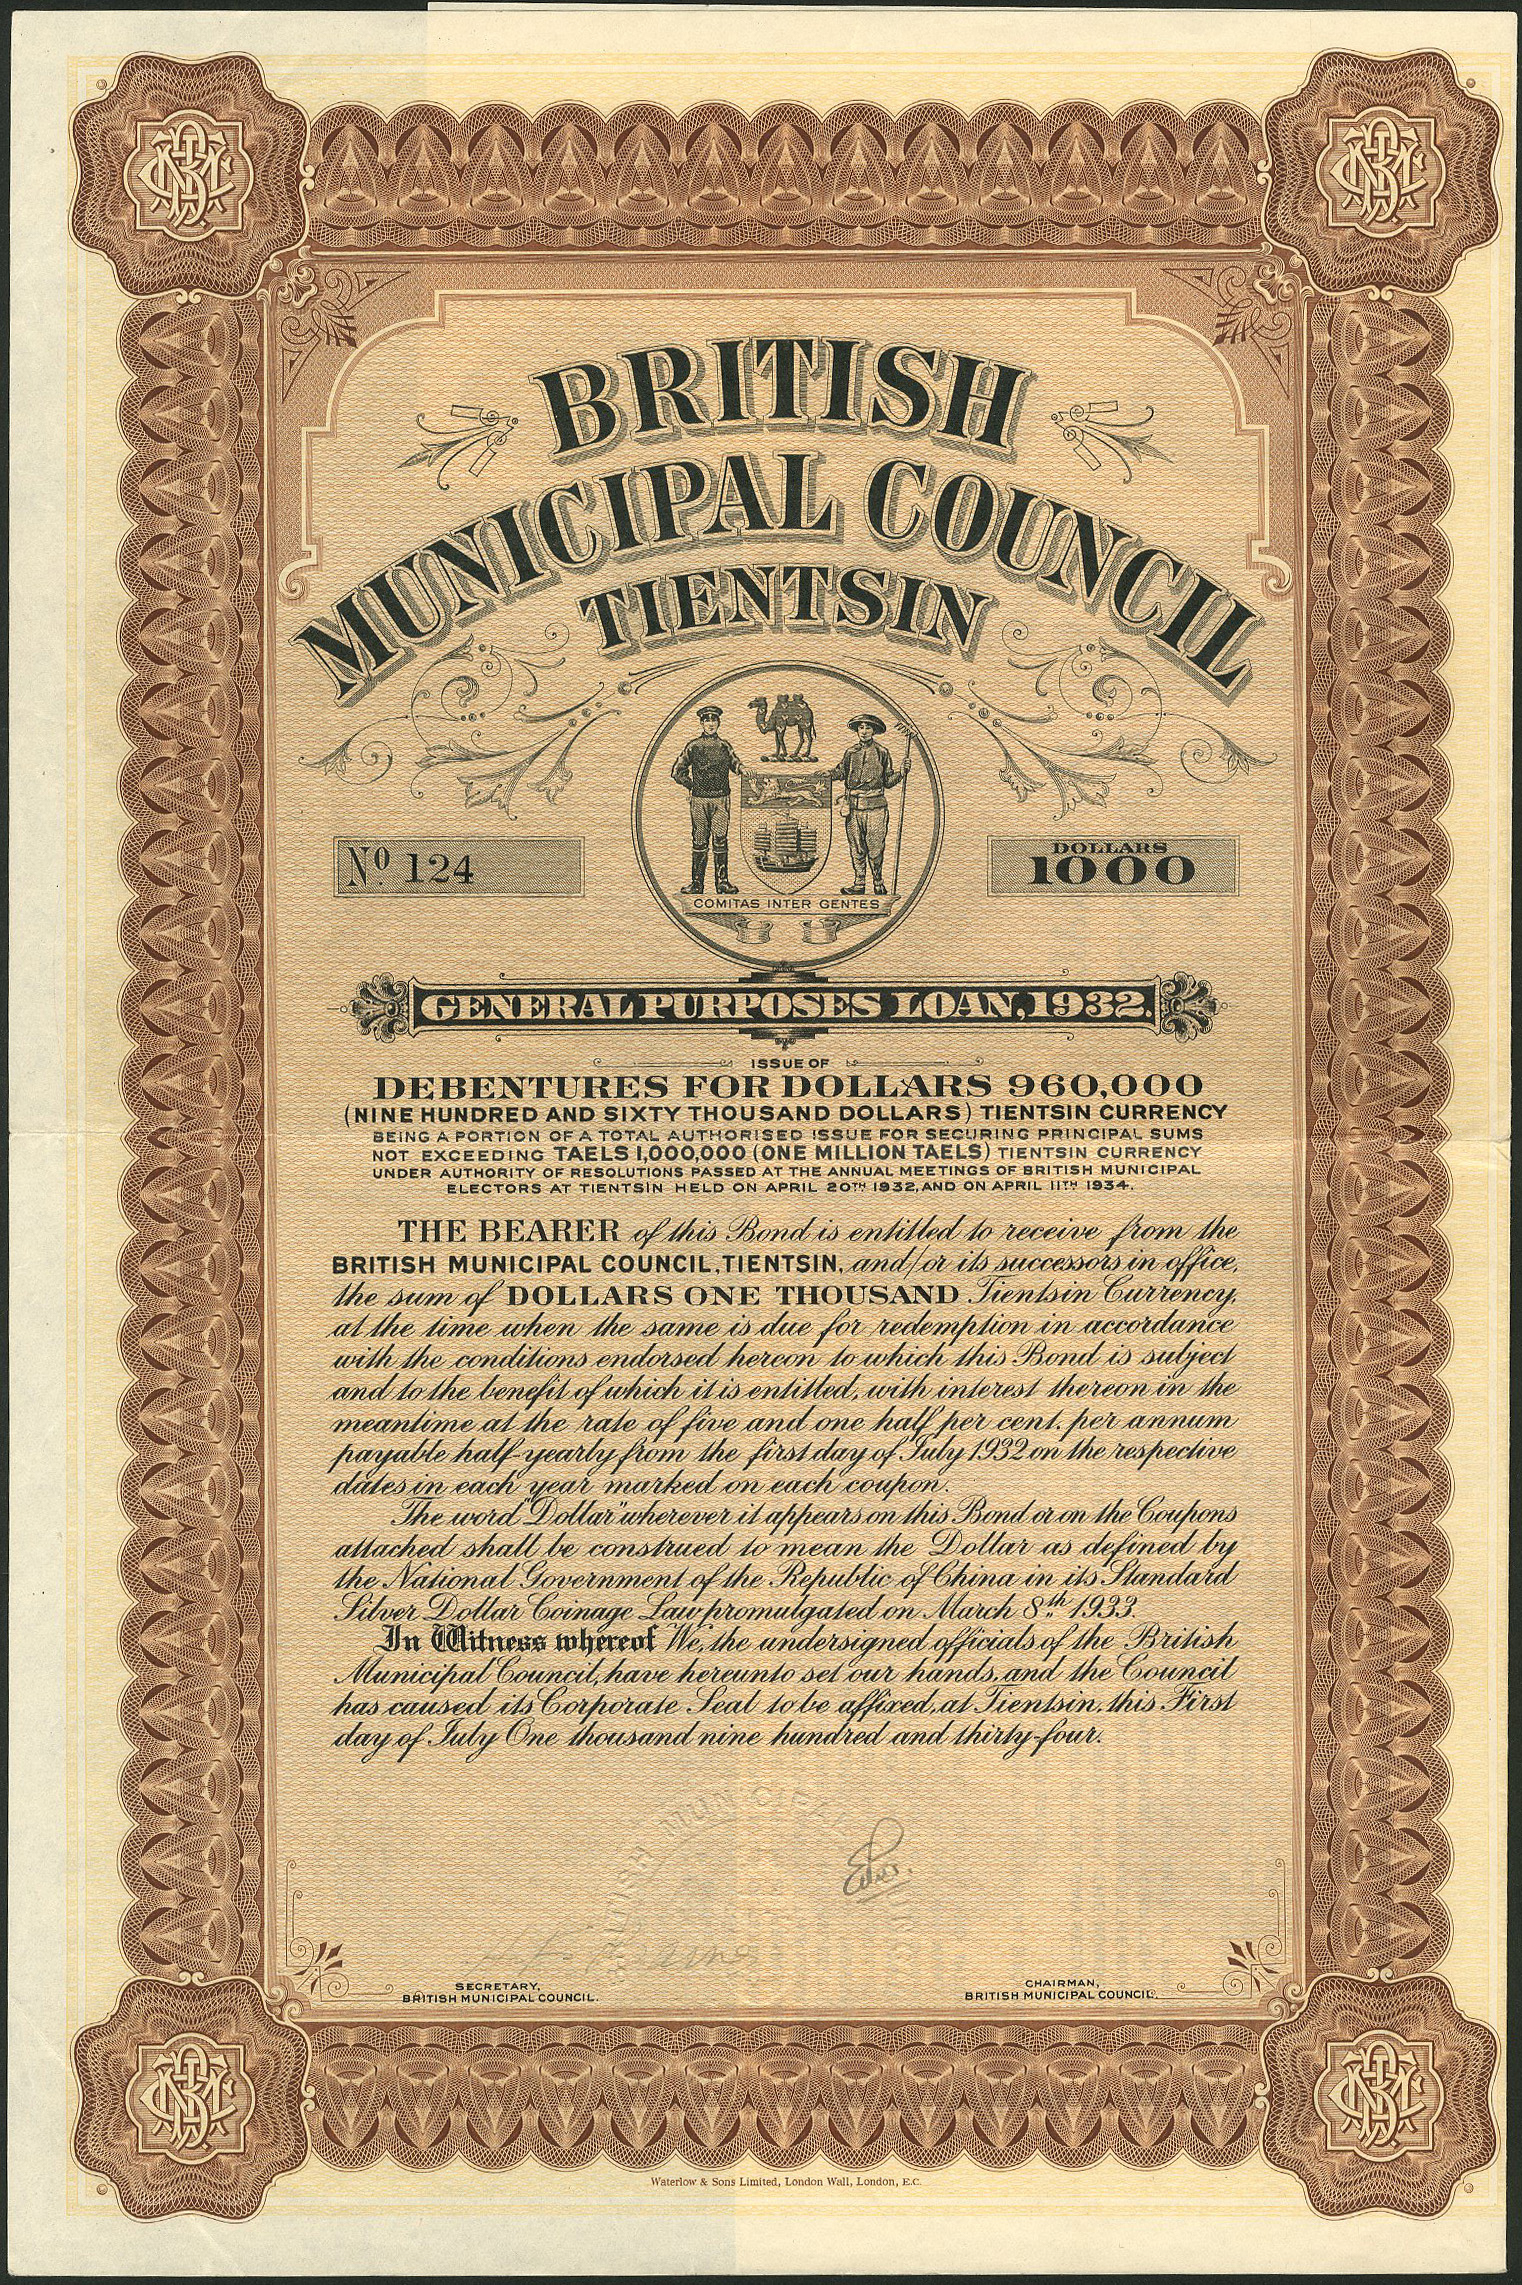 BRITISH
MUNICIPAL COUNCIL
TIENTSIN
No. 124
DOLLARS
1000
COMITAS INTER GENTES
GENERAL PURPOSES LOAN, 1932.
ISSUE OF
DEBENTURES FOR DOLLARS 960,000
(NINE HUNDRED AND SIXTY THOUSAND DOLLARS) TIENTSIN CURRENCY
BEING A PORTION OF A TOTAL AUTHORISED ISSUE FOR SECURING PRINCIPAL SUMS
NOT EXCEEDING TAELS 1,000,000 (ONE MILLION TAELS) TIENTSIN CURRENCY
UNDER AUTHORITY OF RESOLUTIONS PASSED AT THE ANNUAL MEETINGS OF BRITISH MUNICIPAL
ELECTORS AT TIENTSIN HELD ON APRIL 20TH 1932, AND ON APRIL 11TH 1934.
THE BEARER of this Bond is entitled to receive from the
BRITISH MUNICIPAL COUNCIL, TIENTSIN, and/or its successors in office,
the sum of DOLLARS ONE THOUSAND Tientsin Currency,
at the time when the same is due for redemption in accordance
with the conditions endorsed hereon to which this Bond is subject
and to the benefit of which it is entitled, with interest thereon in the
meantime at the rate of five and one half per cent. per annum
payable half-yearly from the first day of July 1932 on the respective
dates in each year marked on each coupon.
The word "Dollar" wherever it appears on this Bond or on the Coupons
attached shall be construed to mean the Dollar as defined by
the National Government of the Republic of China in its Standard
Silver Dollar Coinage Law promulgated on March 8th 1933.
In Witness whereof We, the undersigned officials of the British
Municipal Council, have hereunto set our hands, and the Council
has caused its Corporate Seal to be affixed, at Tientsin, this First
day of July One thousand nine hundred and thirty-four.
SECRETARY,
BRITISH MUNICIPAL COUNCIL.
CHAIRMAN,
BRITISH MUNICIPAL COUNCIL.
Waterlow & Sons Limited, London Wall, London, E.C.